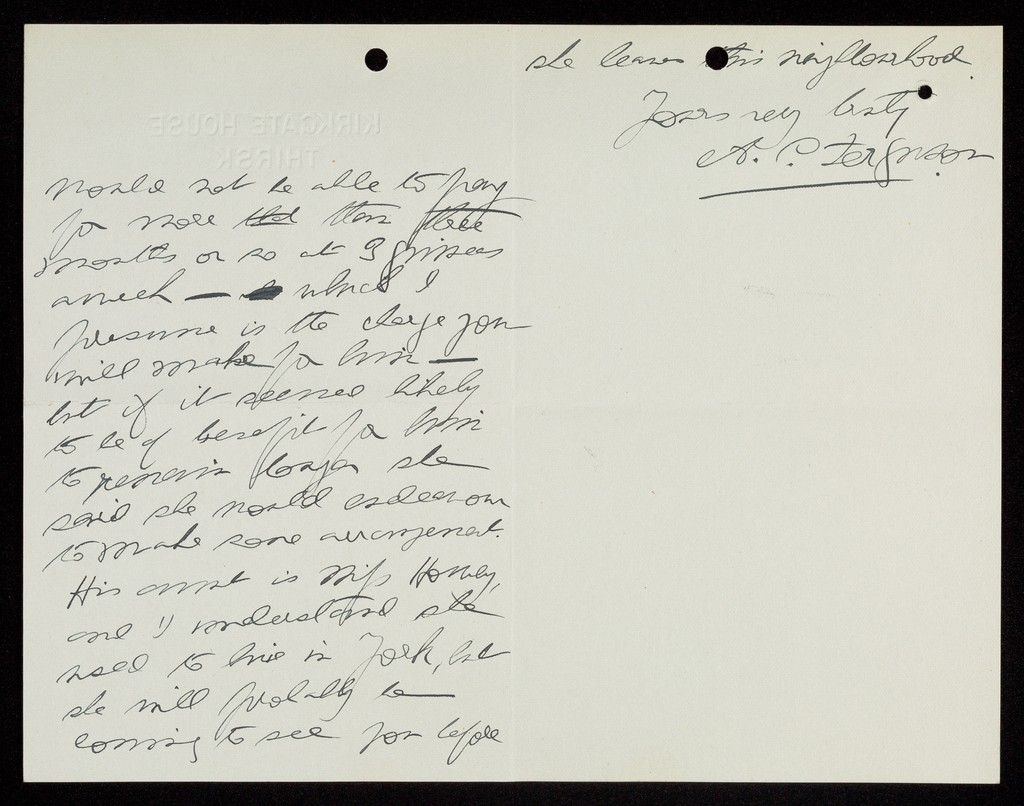 KIRKGATE HOUSE
THIRSK
would not be able to pay
for more than three
months or so at 3 guineas
a week — which I
presume is the charge you
will make for him —
but if it seemed likely
to be of benefit for him
to remain longer she
said she would endeavour
to make some arrangement.
His aunt is Miss Honey,
and I understand she
used to live in York, but
she will probably be
coming to see you before
she leaves this neighbourhood.
Yours very truly
A. P. Ferguson